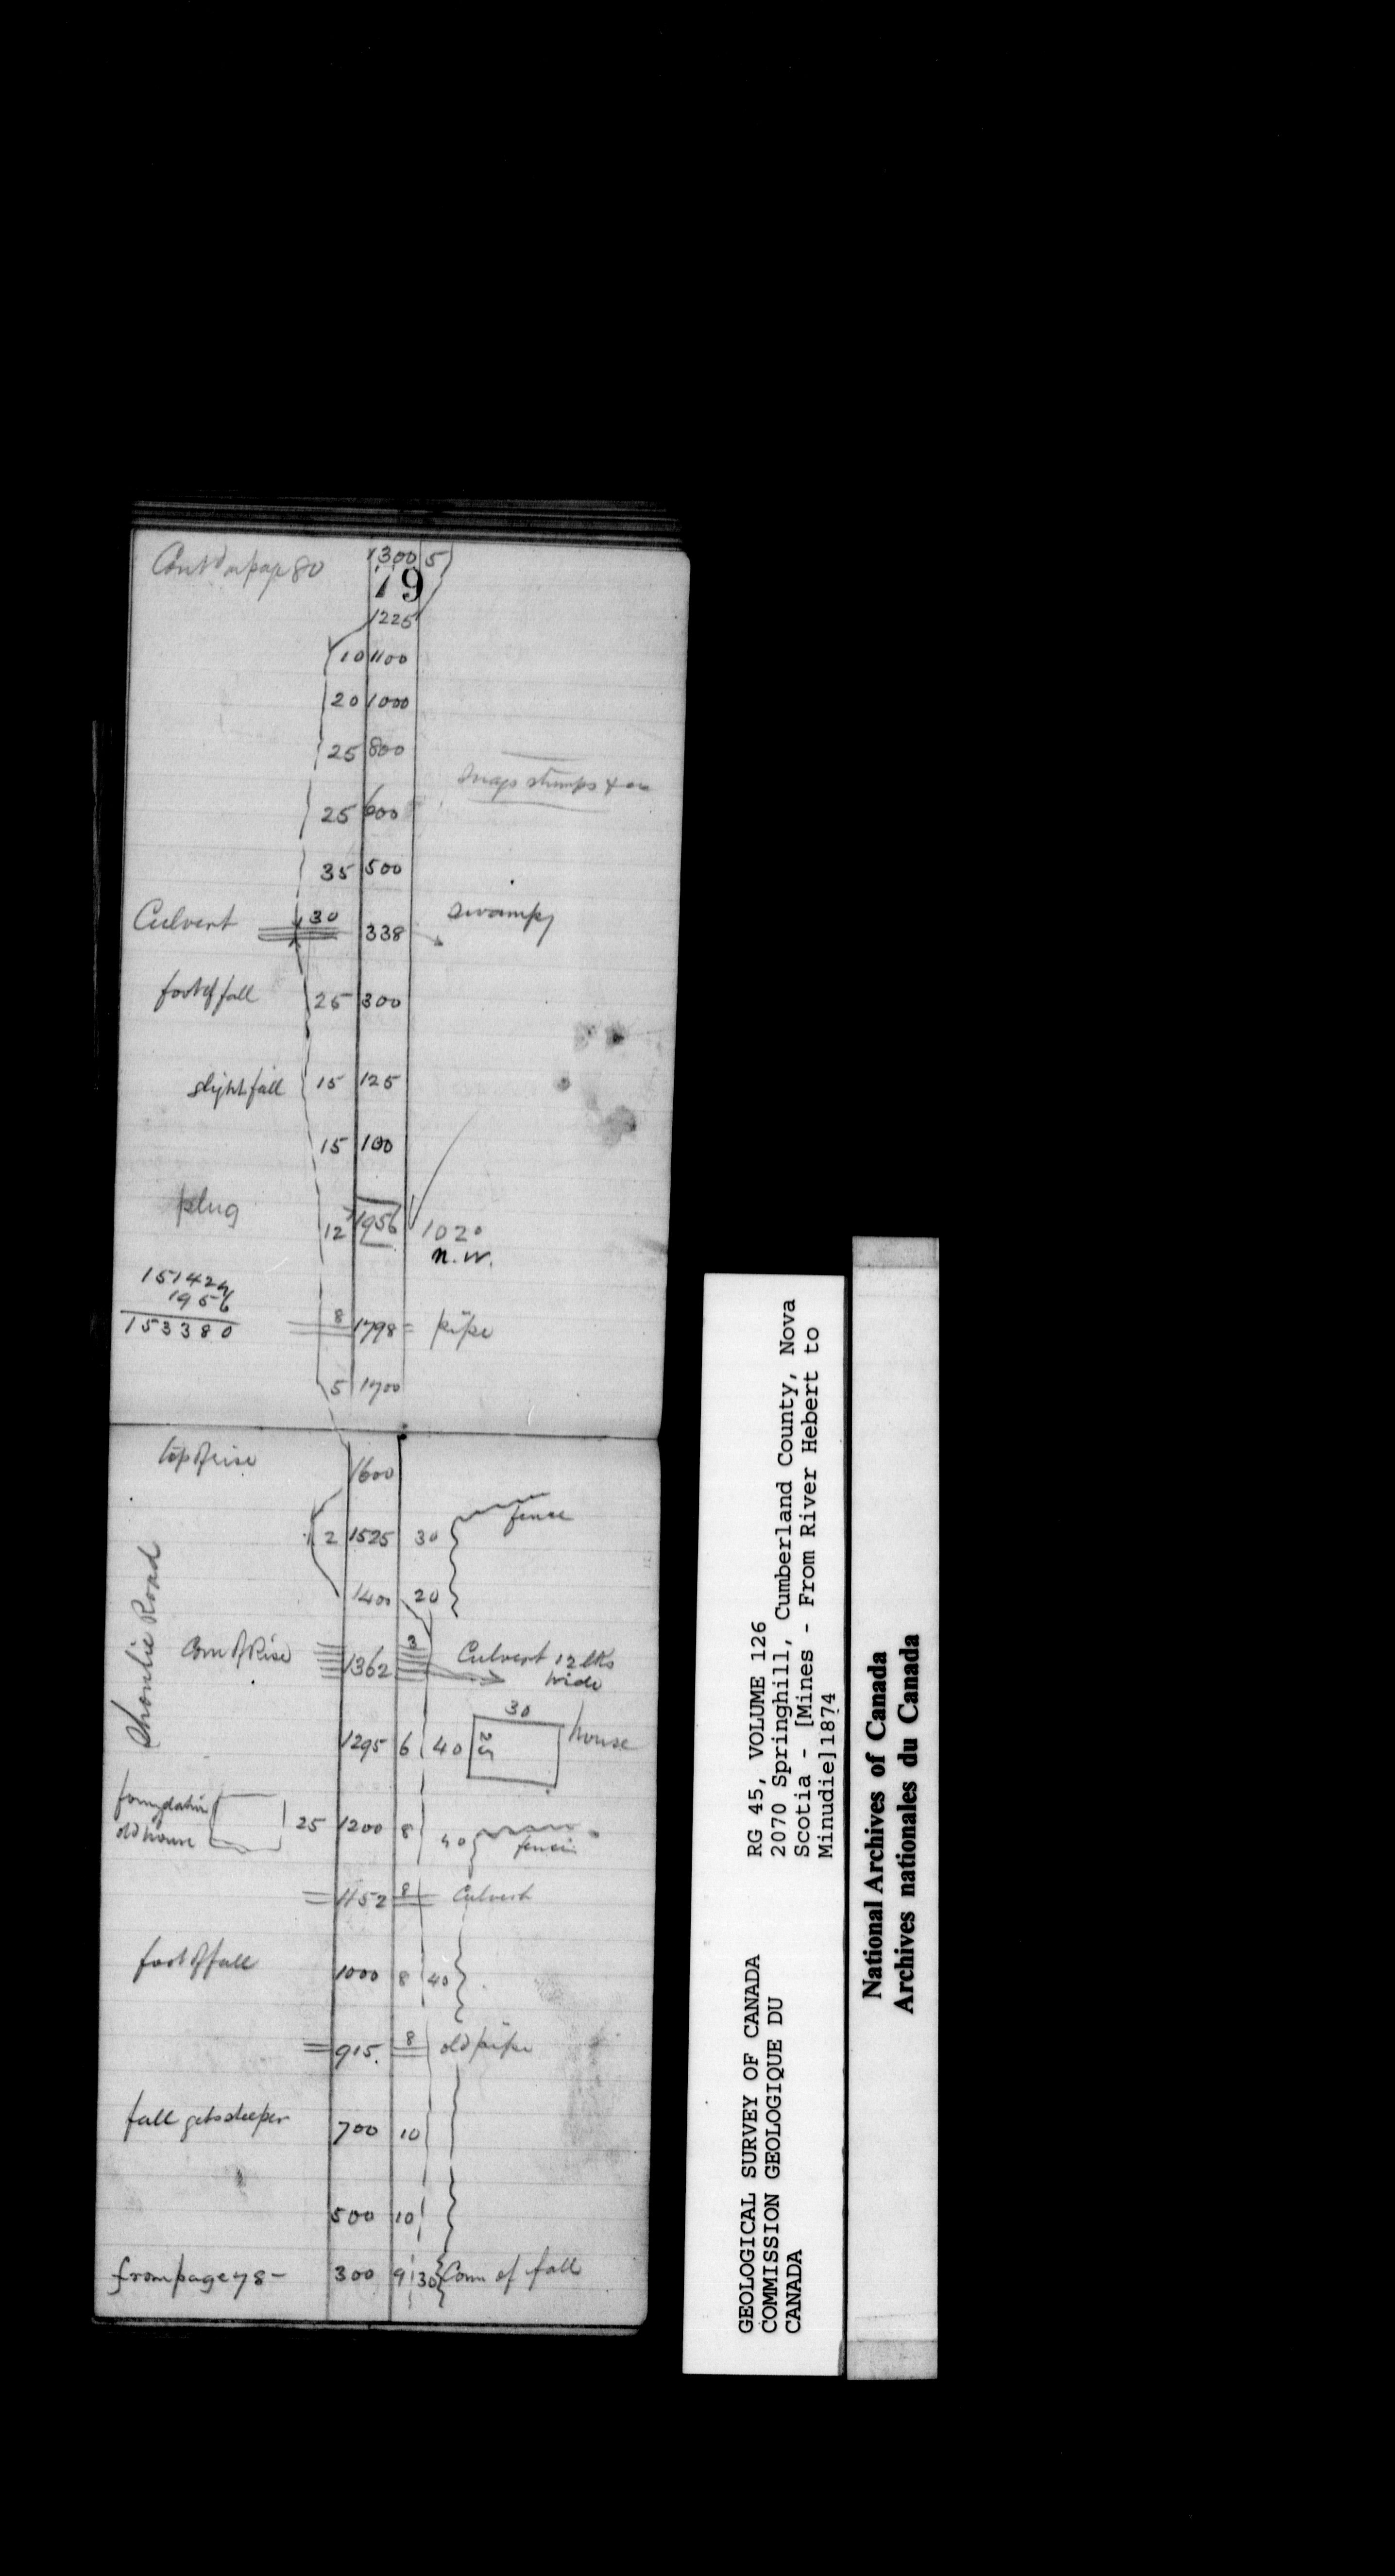 Cont'd on page 80 1300 5
79
1225
10 1100
20 1000
25 800
snags stumps &
25 600
35 500
Culvert 30 338 swampy
foot of fall 25 300
slight fall 15 125
15 100
plug 12 1956 102°
N.W.
151424
1956
153380
8 1798 pipe
5 1700
top of rise 1600
fence
2 1525 30
1400 20
Road
Com of Rise 1362 3 Culvert 12 lks
wide
30
1295 6 40 25 house
foundation
old house 25 1200 8 40 fence
1152 8 Culvert
foot of fall 1000 8 40
915. 8 old pipe
fall gets steeper 700 10
500 10
from page 78 - 300 9 30 Com of fall
GEOLOGICAL SURVEY OF CANADA
COMMISSION GEOLOGIQUE DU
CANADA
RG 45, VOLUME 126
2070 Springhill, Cumberland County, Nova
Scotia - [Mines - From River Hebert to
Minudie]1874
National Archives of Canada
Archives nationales du Canada